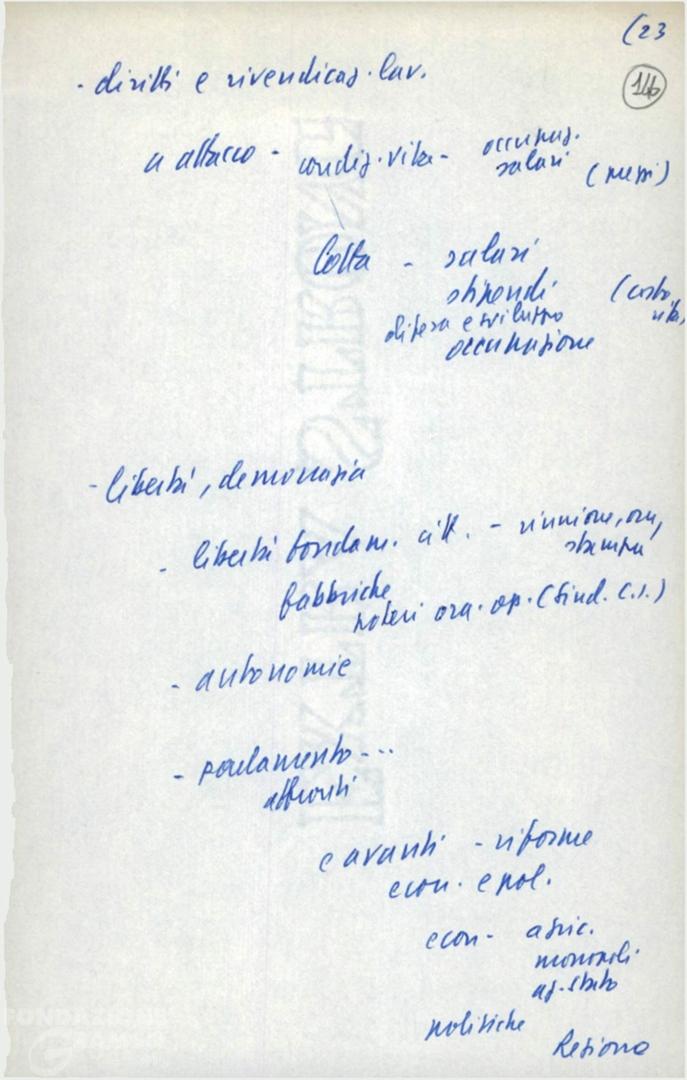 (23
14b
- diritti e rivendicaz. lav.
a attacco - condiz. vita - occupaz.
salari
(prezzi)
lotta - salari
stipendi
(costo vita)
difesa e sviluppo
occupazione
- libertà, democrazia
- libertà fondam. citt. - riunione, org,
stampa
fabbriche
poteri org. op. (sind. c.i.)
- autonomie
- parlamento ...
affronti
e avanti - riforme
econ. e pol.
econ - agric.
monopoli
az. stato
politiche
Regione
FONDAZIONE
GRAMSCI